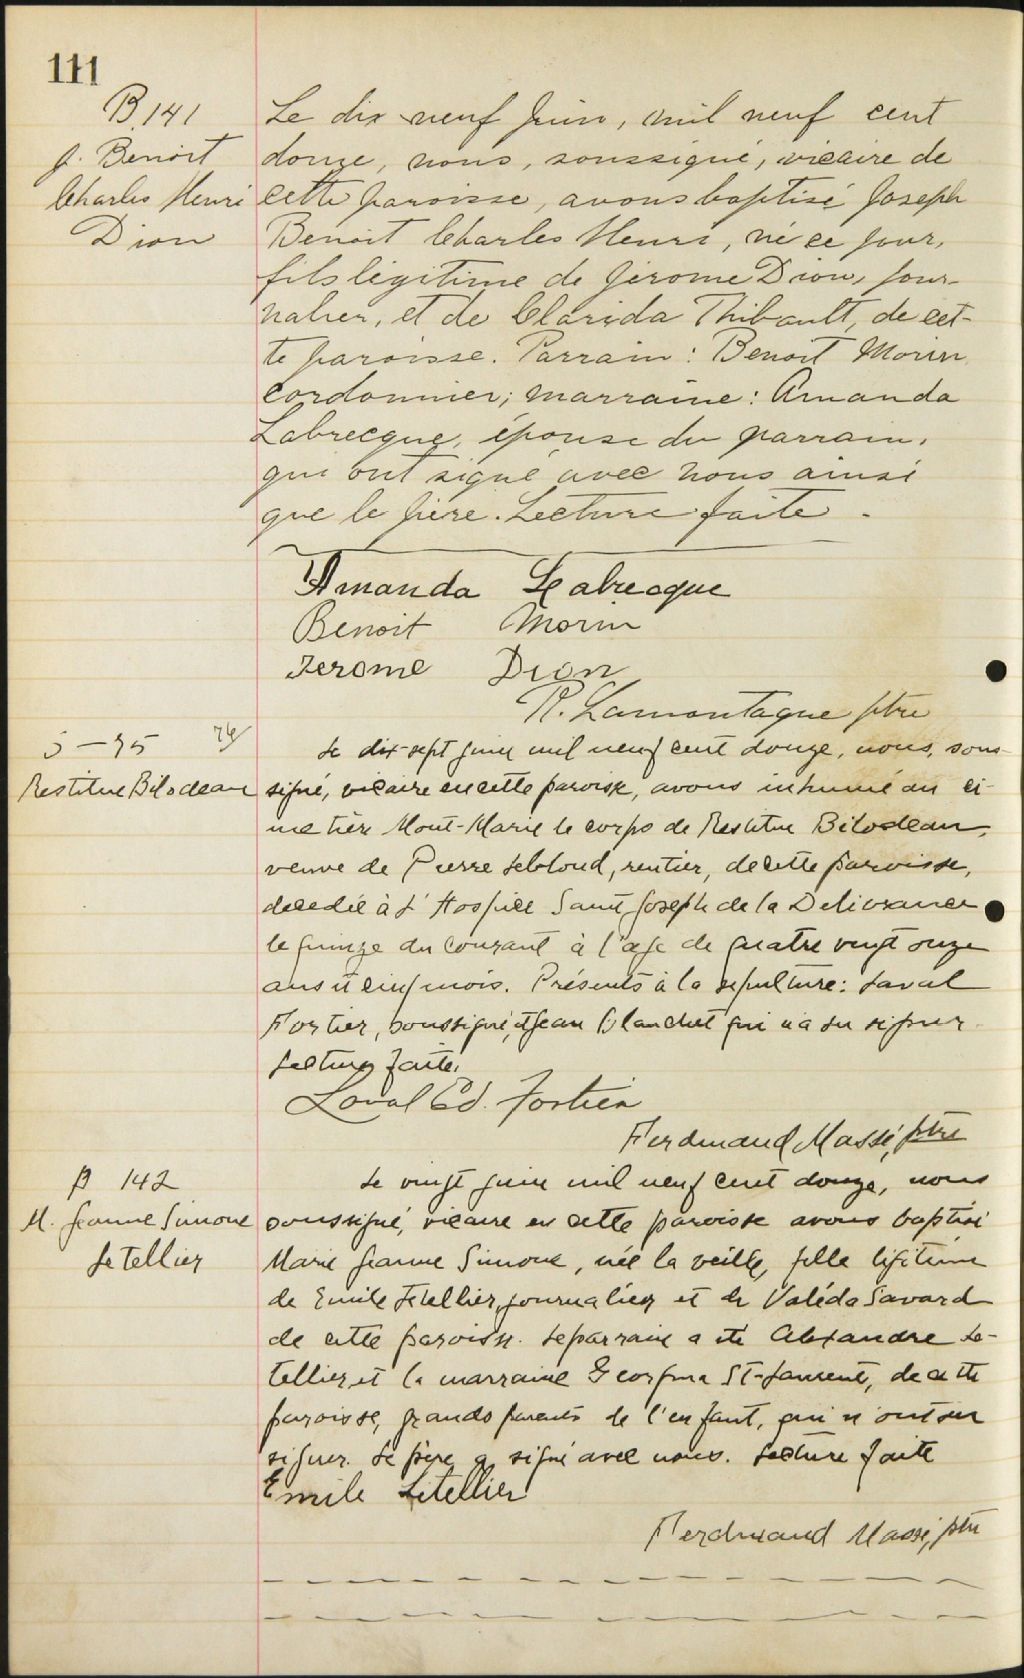 111
B 141
J. Benoit
Charles Henri
Dion
Le dix-neuf Juin, mil neuf cent
douze, nous, soussigné, vicaire de
cette paroisse, avons baptisé Joseph
Benoit Charles Henri, né ce jour,
fils légitime de Jérome Dion, jour-
nalier, et de Clarida Thibault, de cet-
te paroisse. Parrain : Benoit Morin
cordonnier; marraine : Amanda
Labrecque, épouse du parrain,
qui ont signé avec nous ainsi
que le père. Lecture faite.
Amanda Labrecque
Benoit Morin
Jerome Dion
R. Lamontagne ptre
S-75
Restitue Bilodeau
Le dix-sept juin mil neuf cent douze, nous, sous-
signé, vicaire en cette paroisse, avons inhumé au ci-
metière Mont-Marie le corps de Restitue Bilodeau,
veuve de Pierre Leblond, rentier, de cette paroisse,
décédée à l'Hospice Saint Joseph de la Delivrance
le quinze du courant à l'age de quatre vingt onze
ans et cinq mois. Présents à la sépulture: Laval
Fortier, soussigné, et Jean Blanchet qui n'a su signer.
Lecture faite.
Laval Ed. Fortier
Ferdinand Massé, ptre
B 142
M. Jeanne Simone
Letellier
Le vingt juin mil neuf cent douze, nous
soussigné, vicaire en cette paroisse avons baptisé
Marie Jeanne Simone, née la veille, fille légitime
de Emile Letellier, journalier et de Valéda Savard
de cette paroisse. Le parrain a été Alexandre Le-
tellier et la marraine Georgina St-Laurent, de cette
paroisse, grands parents de l'enfant, qui n'ont su
signer. Le père a signé avec nous. Lecture faite
Emile Letellier
Ferdinand Massé, ptre